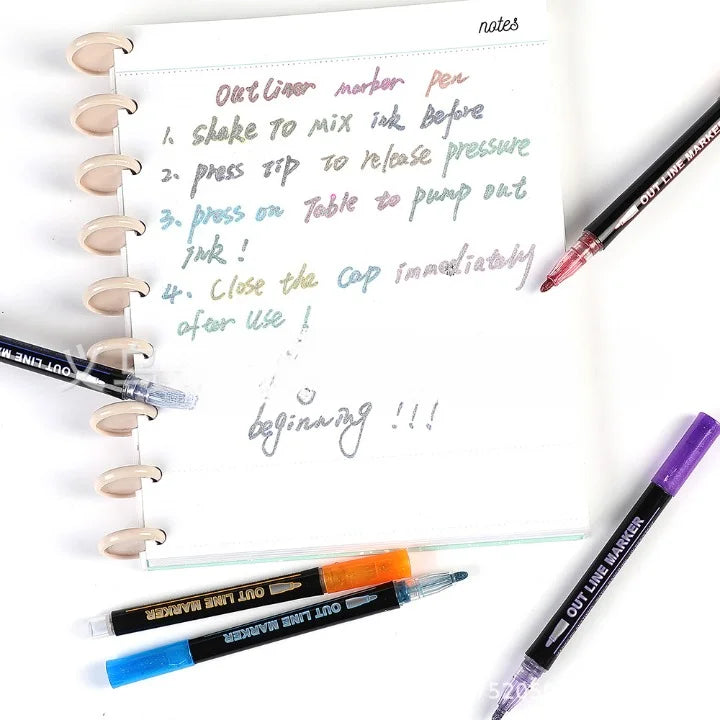 notes
Outliner marker pen
1. shake To Mix ink Before
2. press Tip To release pressure
3. press on Table to pump out
ink !
4. Close the Cap immediately
after Use !
beginning !!!
OUT LINE MARKER
OUT LINE MA
OUT LINE MARKER
OUT LINE MARKER
OUT LINE MARKER